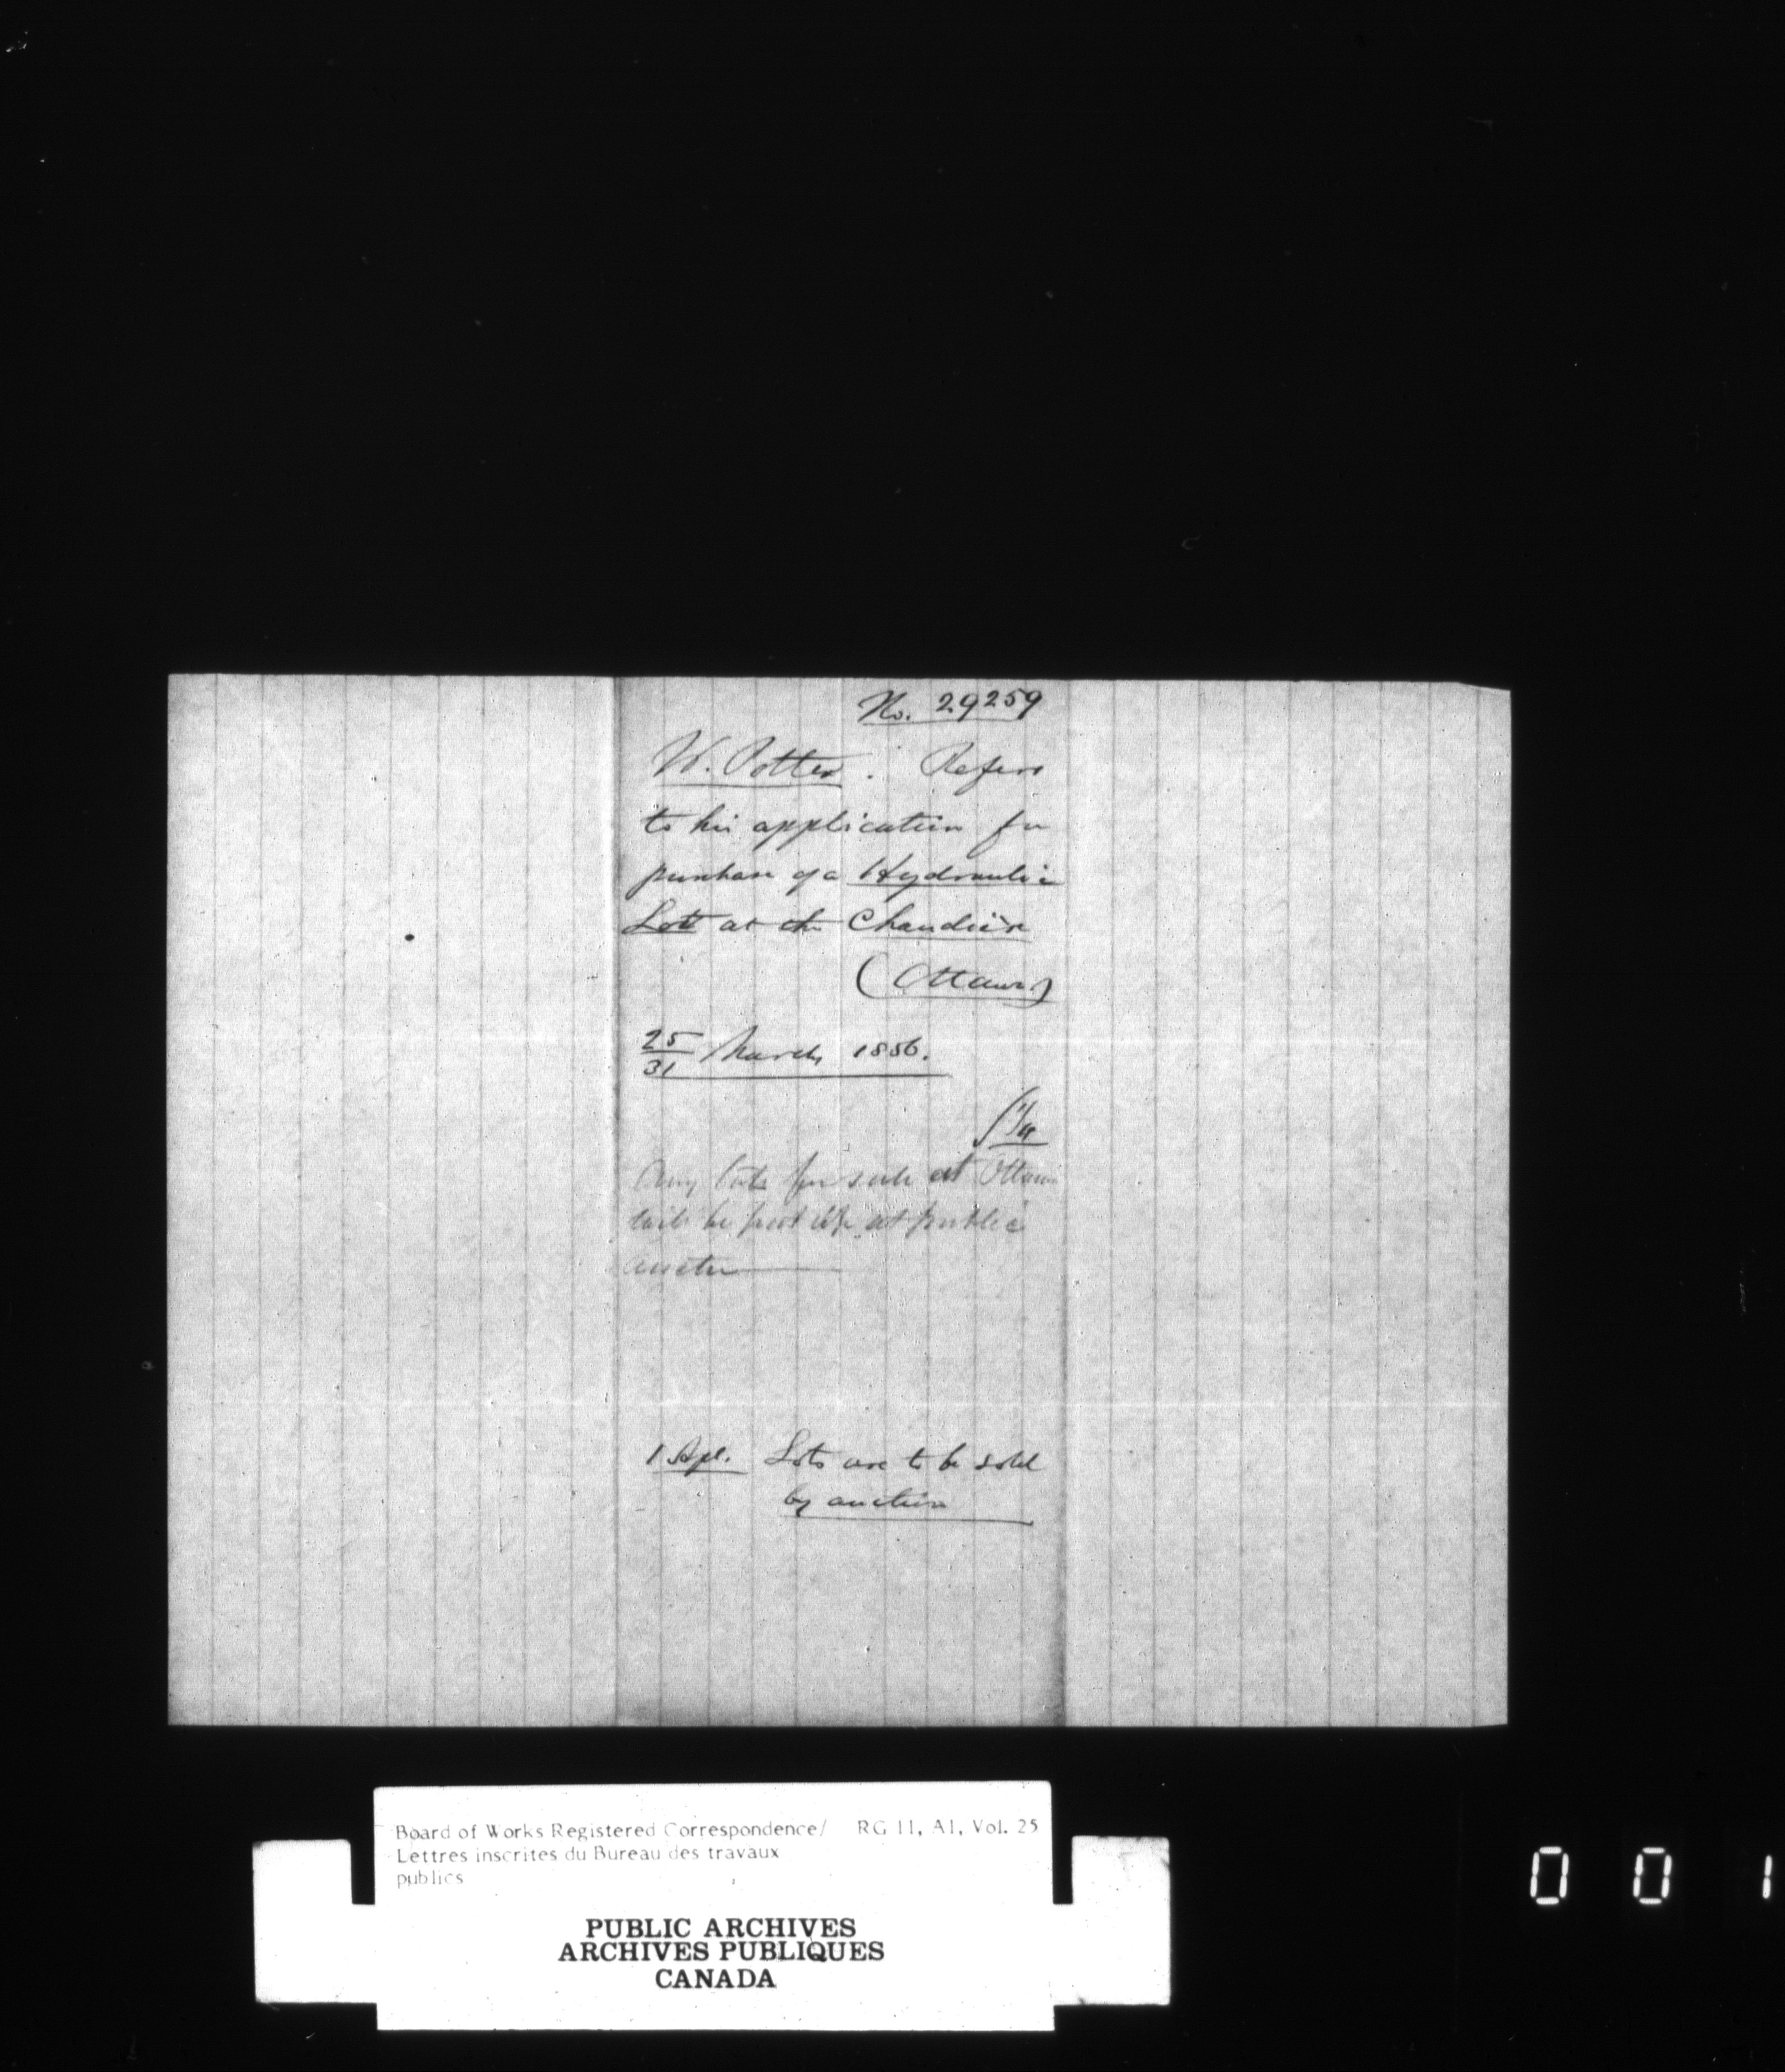 No. 29259
W. Potter. Refers
to his application for
purchase of a Hydraulic
Lot at the Chaudière
(Ottawa)
25/31 March 1856.
1/4
Any lots for sale at Ottawa
will be put up at public
auction
1 Apl. Lots are to be sold
by auction
Board of Works Registered Correspondence/ RG 11, A1, Vol. 25
Lettres inscrites du Bureau des travaux
publics
PUBLIC ARCHIVES
ARCHIVES PUBLIQUES
CANADA
0 0 1